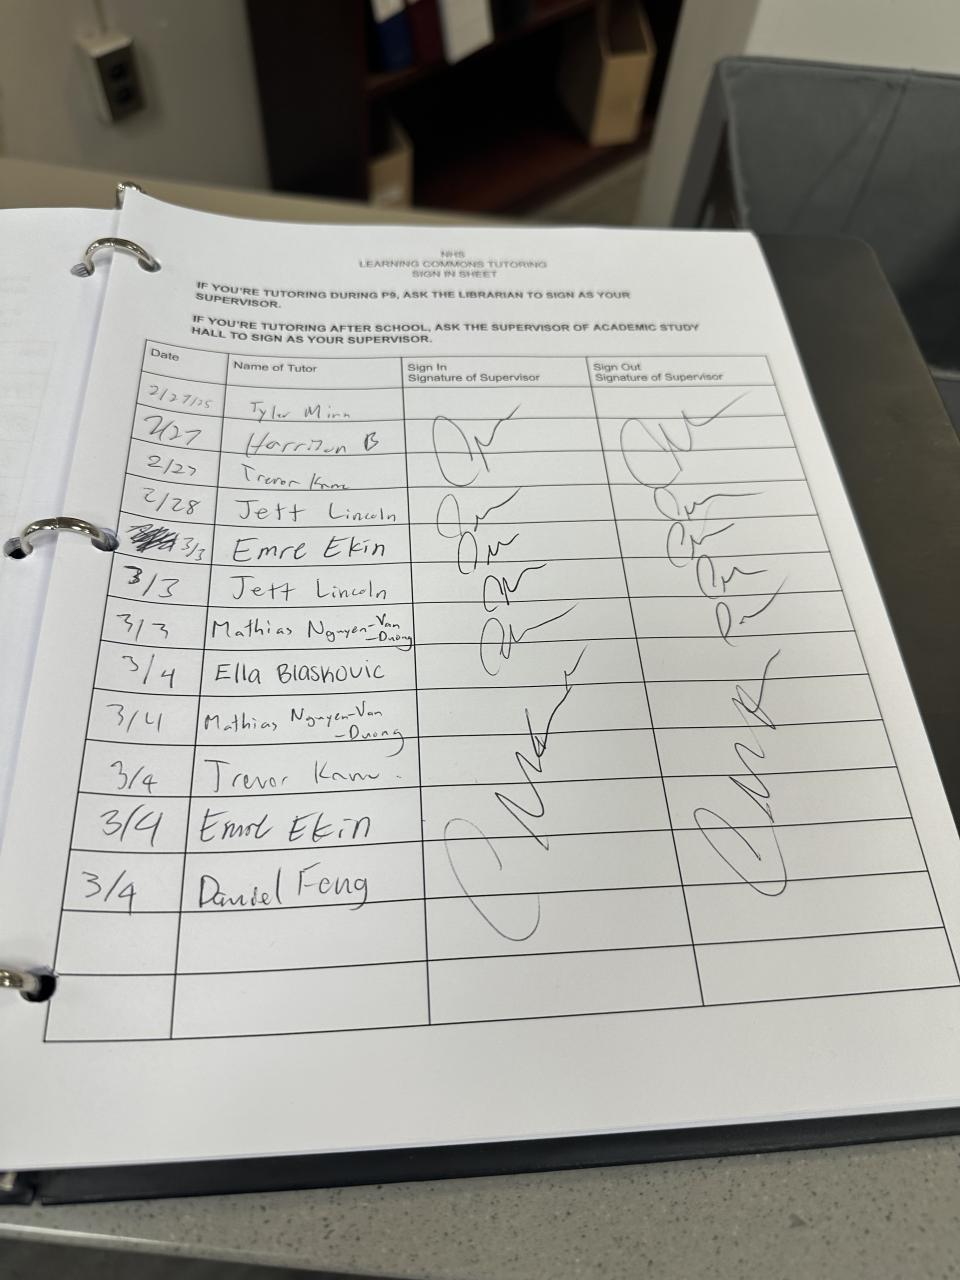 NHS
LEARNING COMMONS TUTORING
SIGN IN SHEET
IF YOU'RE TUTORING DURING P9, ASK THE LIBRARIAN TO SIGN AS YOUR
SUPERVISOR.
IF YOU'RE TUTORING AFTER SCHOOL, ASK THE SUPERVISOR OF ACADEMIC STUDY
HALL TO SIGN AS YOUR SUPERVISOR.
Date Name of Tutor Sign In Signature of Supervisor Sign Out Signature of Supervisor
2/27/25 Tyler Minn
2/27 Harrison B
2/27 Trevor
2/28 Jett Lincoln
3/3 Emre Ekin
3/3 Jett Lincoln
3/3 Mathias Nguyen-Van
-Duong
3/4 Ella Blaskovic
3/4 Mathias Nguyen-Van
-Duong
3/4 Trevor
3/4 Emre Ekin
3/4 Daniel Feng